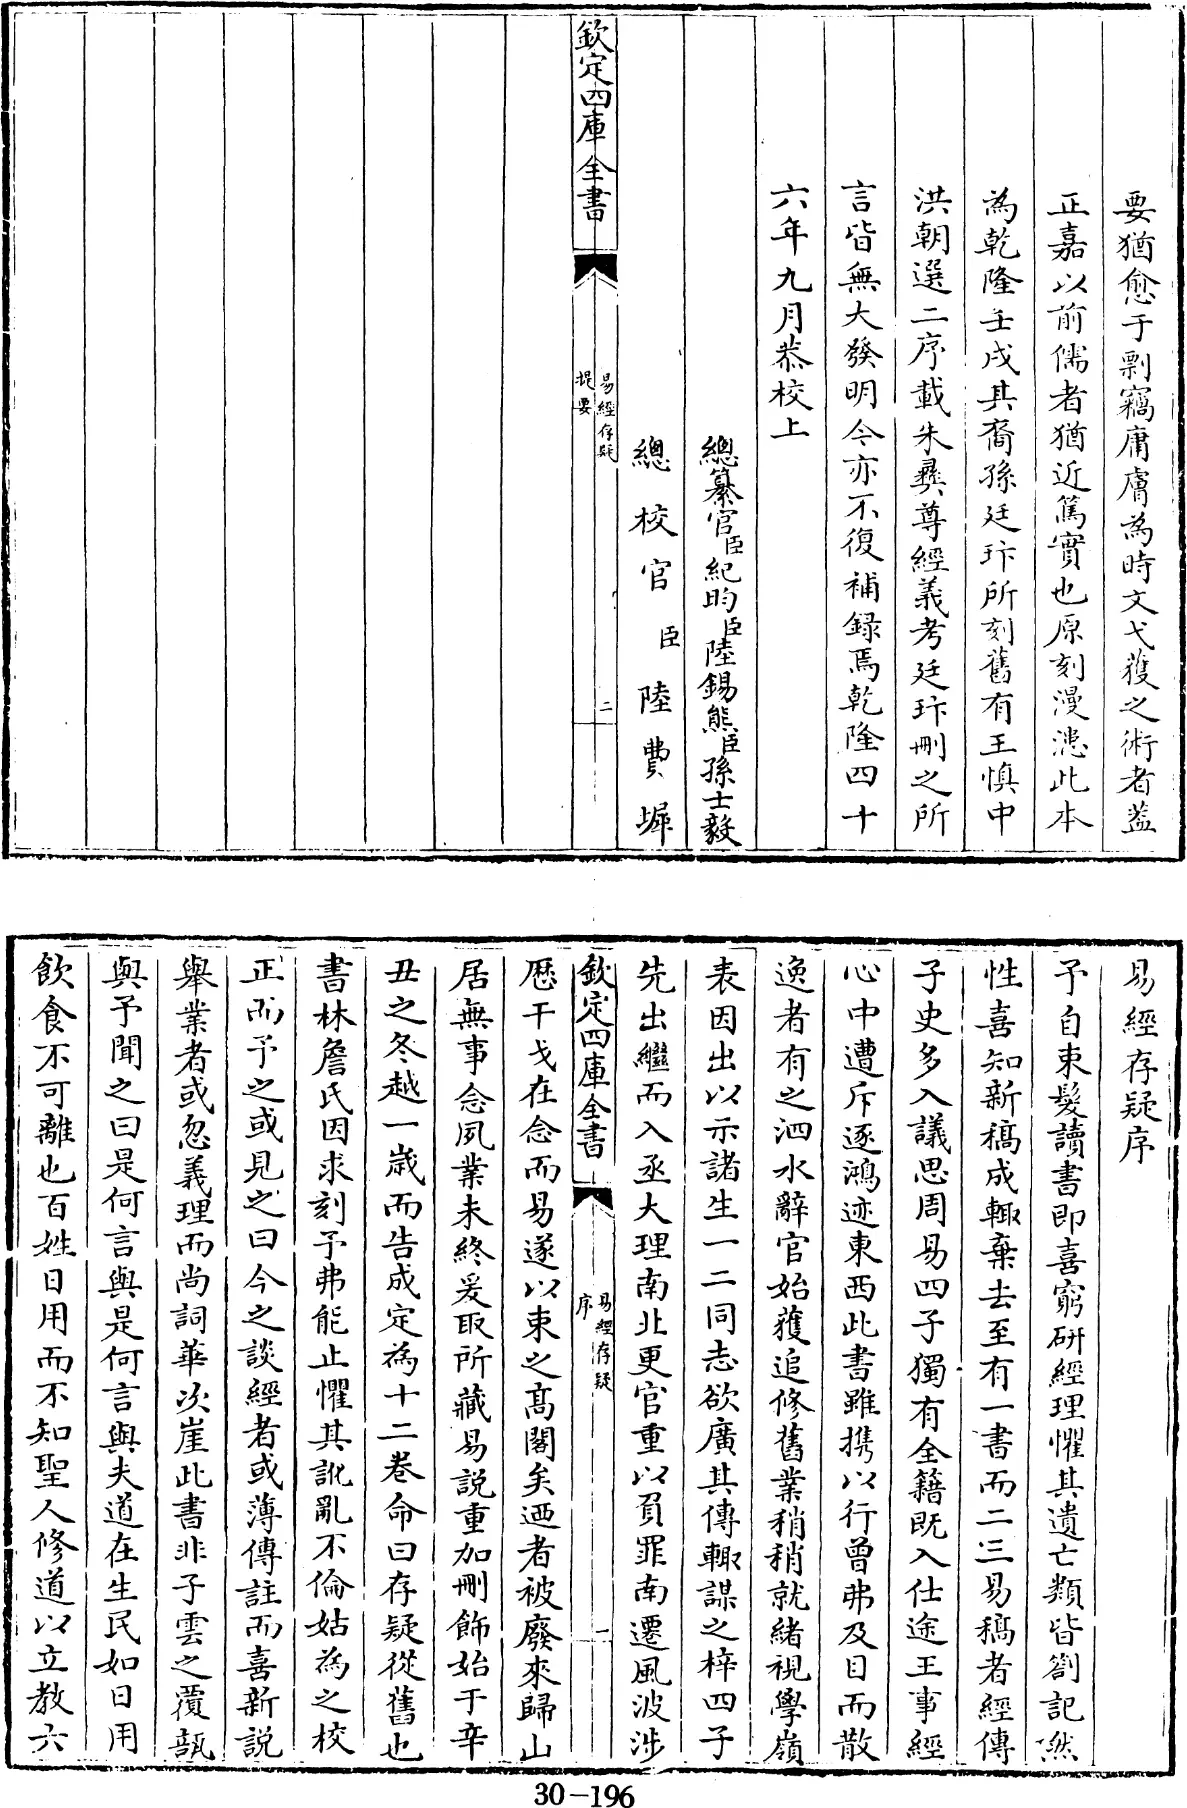 要猶愈于剽竊庸膚為時文弋獲之術者蓋
正嘉以前儒者猶近篤實也原刻漫漶此本
為乾隆壬戌其裔孫廷玣所刻舊有王慎中
洪朝選二序載朱彝尊經義考廷玣刪之所
言皆無大發明今亦不復補録焉乾隆四十
六年九月恭校上
總纂官臣紀昀臣陸錫熊臣孫士毅
總校官臣陸費墀
欽定四庫全書
易經存疑
提要
二
易經存疑序
予自束髮讀書即喜窮研經理懼其遺亡類皆劄記然
性喜知新稿成輙棄去至有一書而二三易稿者經傳
子史多入議思周易四子獨有全籍既入仕途王事經
心中遭斥逐鴻迹東西此書雖携以行曾弗及目而散
逸者有之泗水辭官始獲追修舊業稍稍就緒視學嶺
表因出以示諸生一二同志欲廣其傳輙謀之梓四子
先出繼而入丞大理南北更官重以負罪南遷風波涉
欽定四庫全書
易經存疑
序
一
歷干戈在念而易遂以束之高閣矣迺者被廢來歸山
居無事念夙業未終爰取所藏易説重加刪飾始于辛
丑之冬越一嵗而告成定為十二卷命曰存疑從舊也
書林詹氏因求刻予弗能止懼其訛亂不倫姑為之校
正而予之或見之曰今之談經者或薄傳註而喜新説
舉業者或忽義理而尚詞華次崖此書非子雲之覆瓿
與予聞之曰是何言與是何言與夫道在生民如日用
飲食不可離也百姓日用而不知聖人修道以立教六
30-196